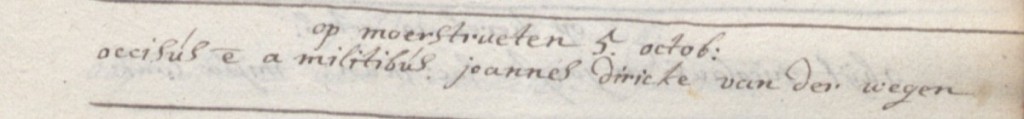 op moerstrueten 5. octob:
occisús ē a militibús. joannes diricke van der wegen